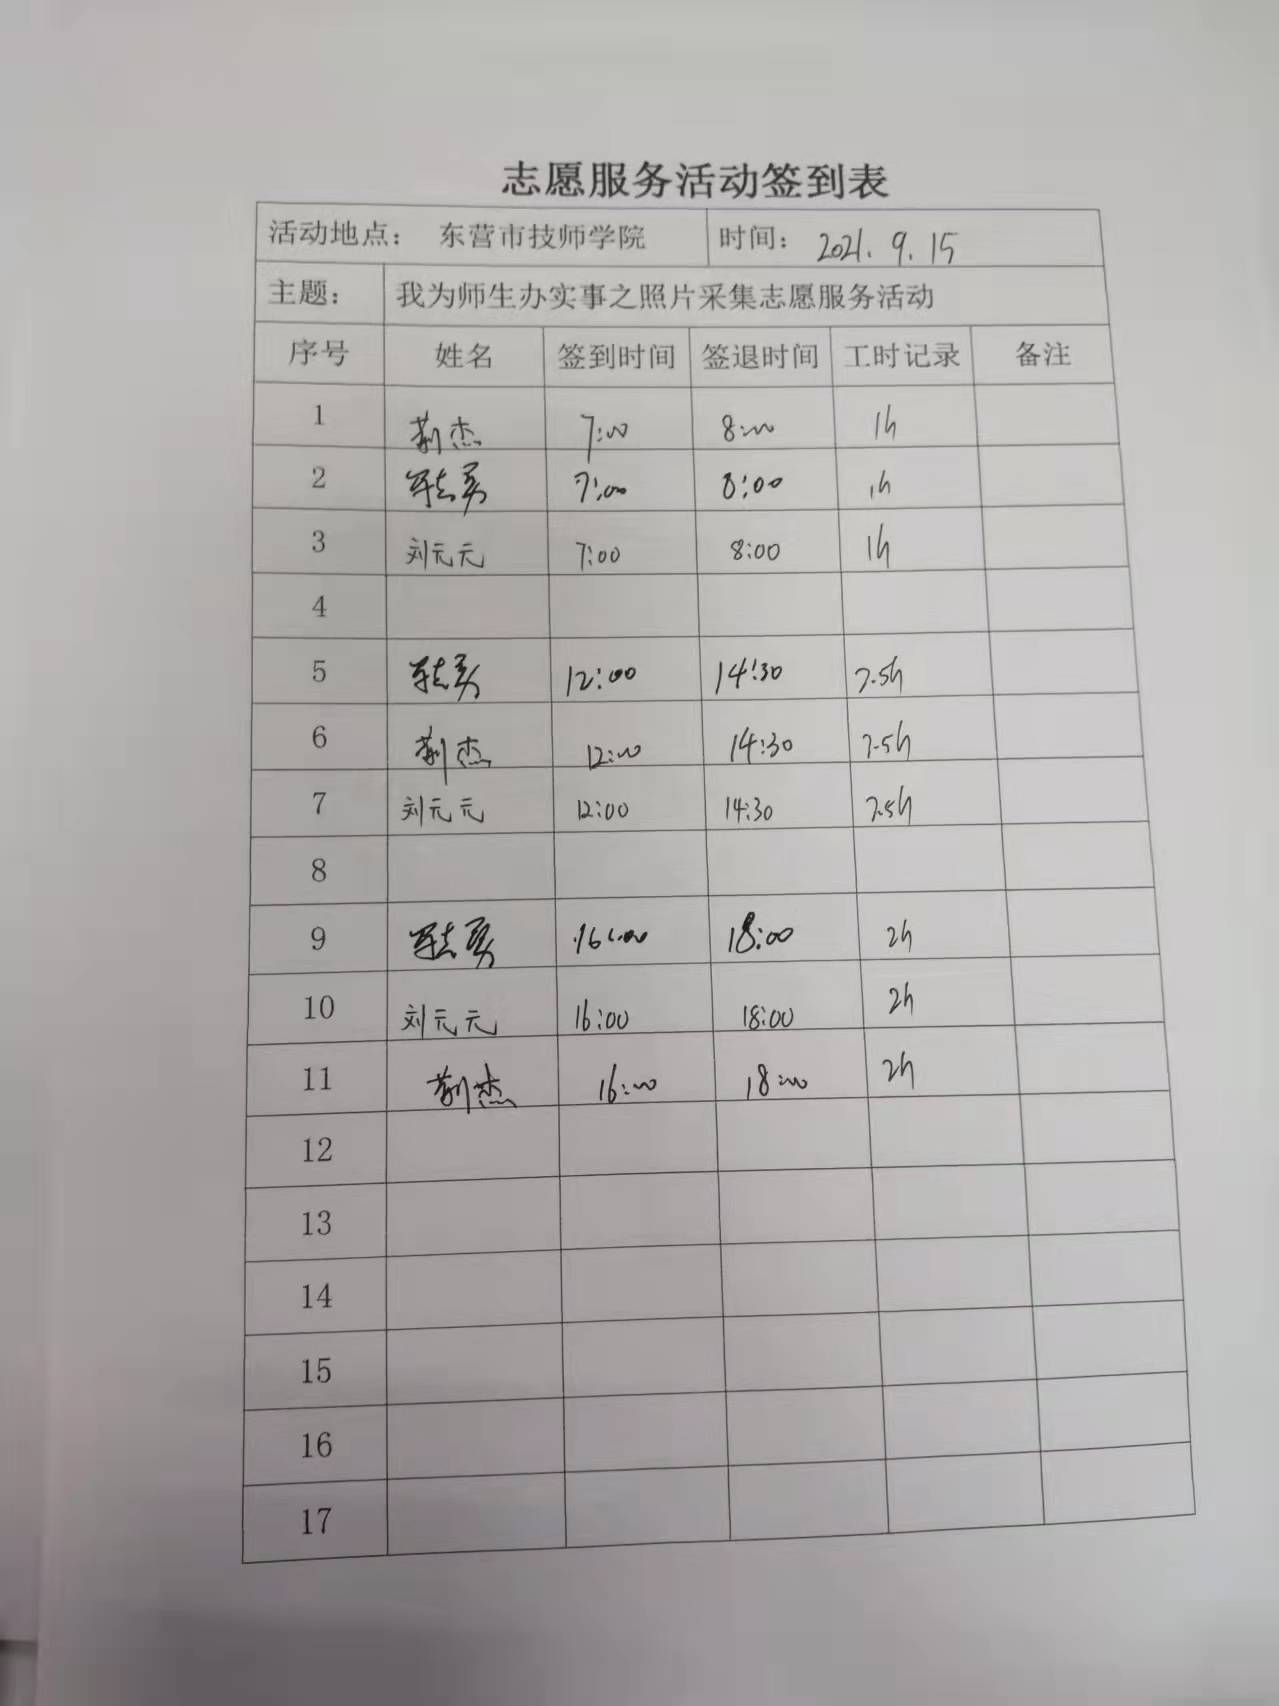 志愿服务活动签到表
活动地点： 东营市技师学院 时间： 2021. 9. 15
主题： 我为师生办实事之照片采集志愿服务活动
序号 姓名 签到时间 签退时间 工时记录 备注
1 杰 7:00 8:00 1h
2 7:00 8:00 1h
3 刘元元 7:00 8:00 1h
4
5 12:00 14:30 2.5h
6 杰 12:00 14:30 2.5h
7 刘元元 12:00 14:30 2.5h
8
9 16:00 18:00 2h
10 刘元元 16:00 18:00 2h
11 杰 16:00 18:00 2h
12
13
14
15
16
17